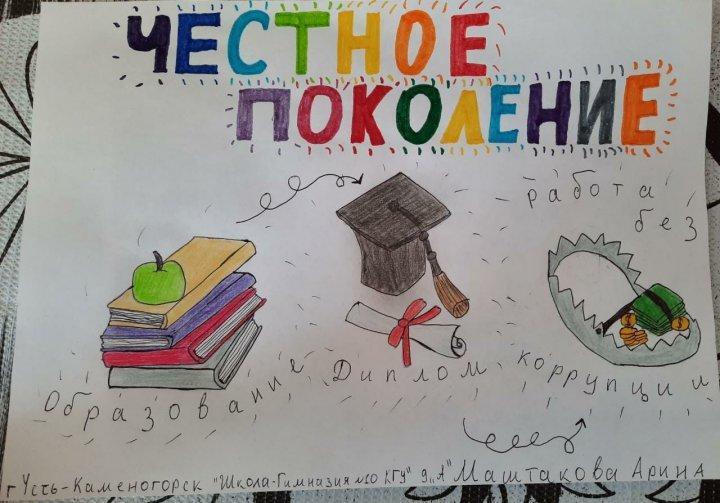 ЧЕСТНОЕ
ПОКОЛЕНИЕ
работа
без
Образование
Диплом
коррупции
г Усть-Каменогорск "Школа-Гимназия №10 КГУ" 9 "А" Маштакова Арина